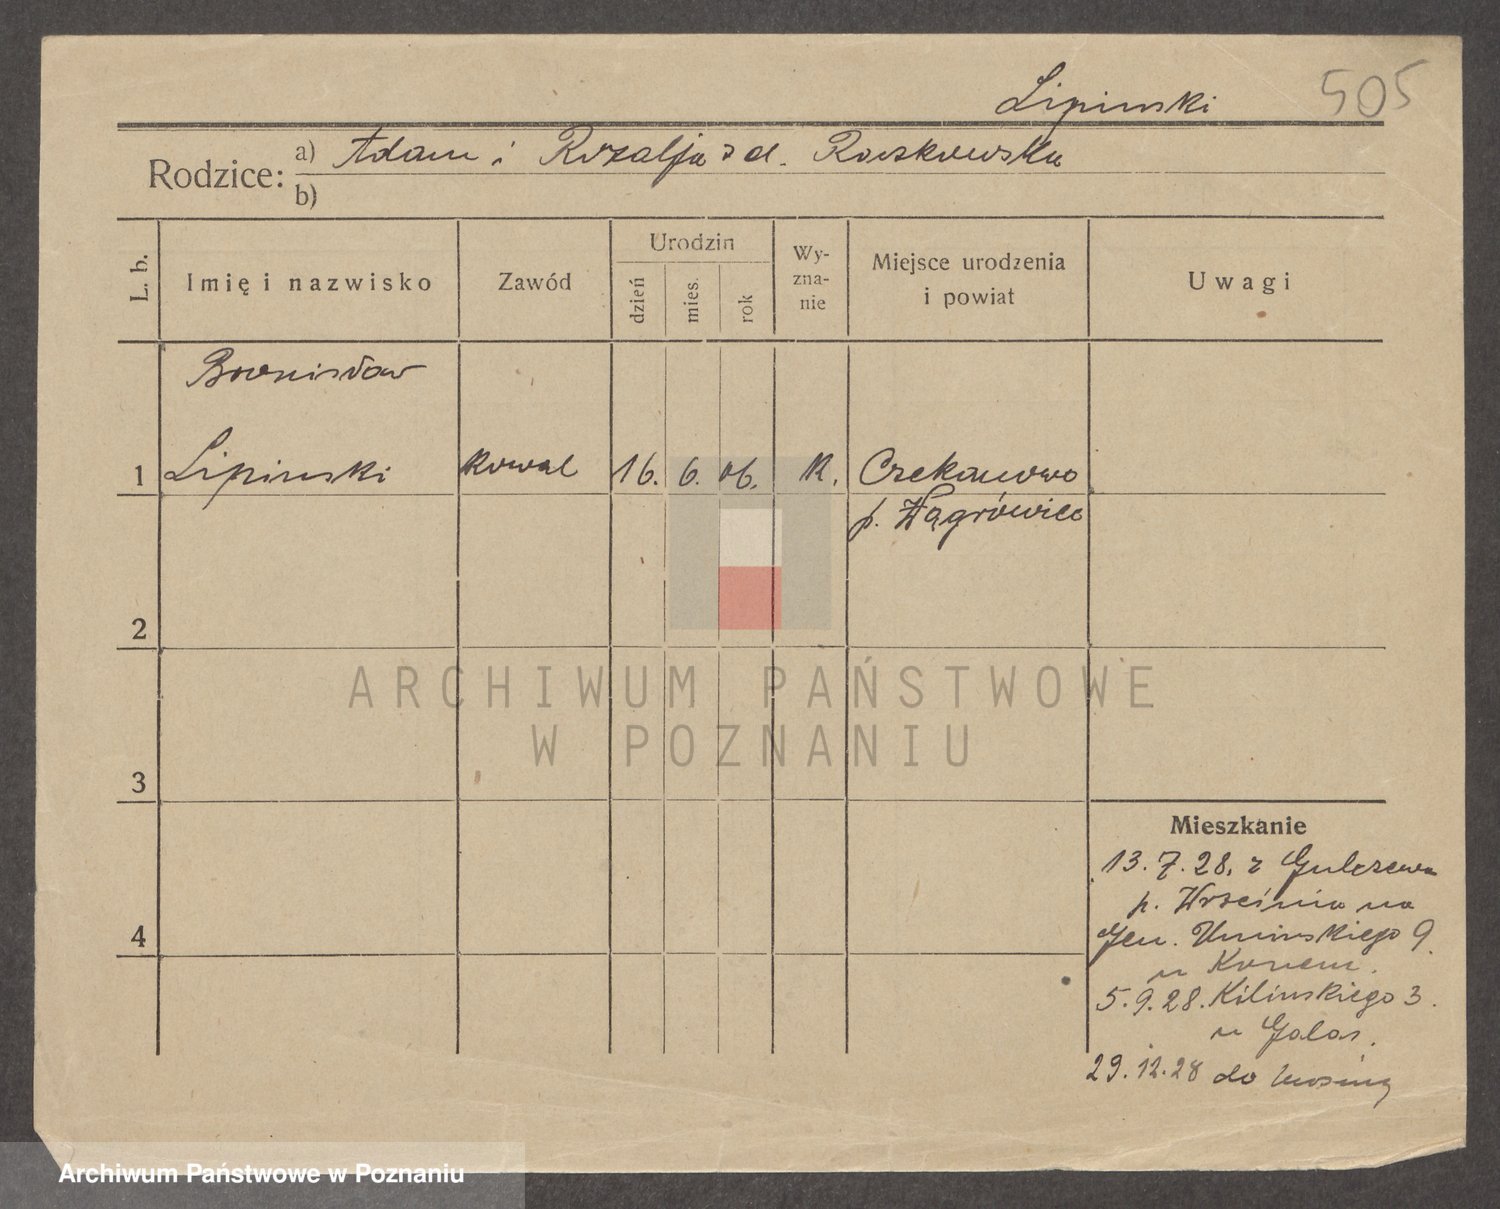 Lipinski
505
Rodzice: a) Adam i Rozalja zd. Roszkowska
b)
L. b. Imię i nazwisko Zawód Urodzin dzień mies. rok Wy-zna-nie Miejsce urodzenia i powiat Uwagi
Bronisław
1 Lipinski kowal 16. 6. 06. K. Czekanowo
p. Wągrówiec
2
ARCHIWUM PAŃSTWOWE
W POZNANIU
3
Mieszkanie
13.7.28. z Gulczewa
p. Wrzeínia na
4
Gen. Uminskiego 9.
u
5.9.28. Kilinskiego 3.
u Galas.
29.12.28 do
Archiwum Państwowe w Poznaniu